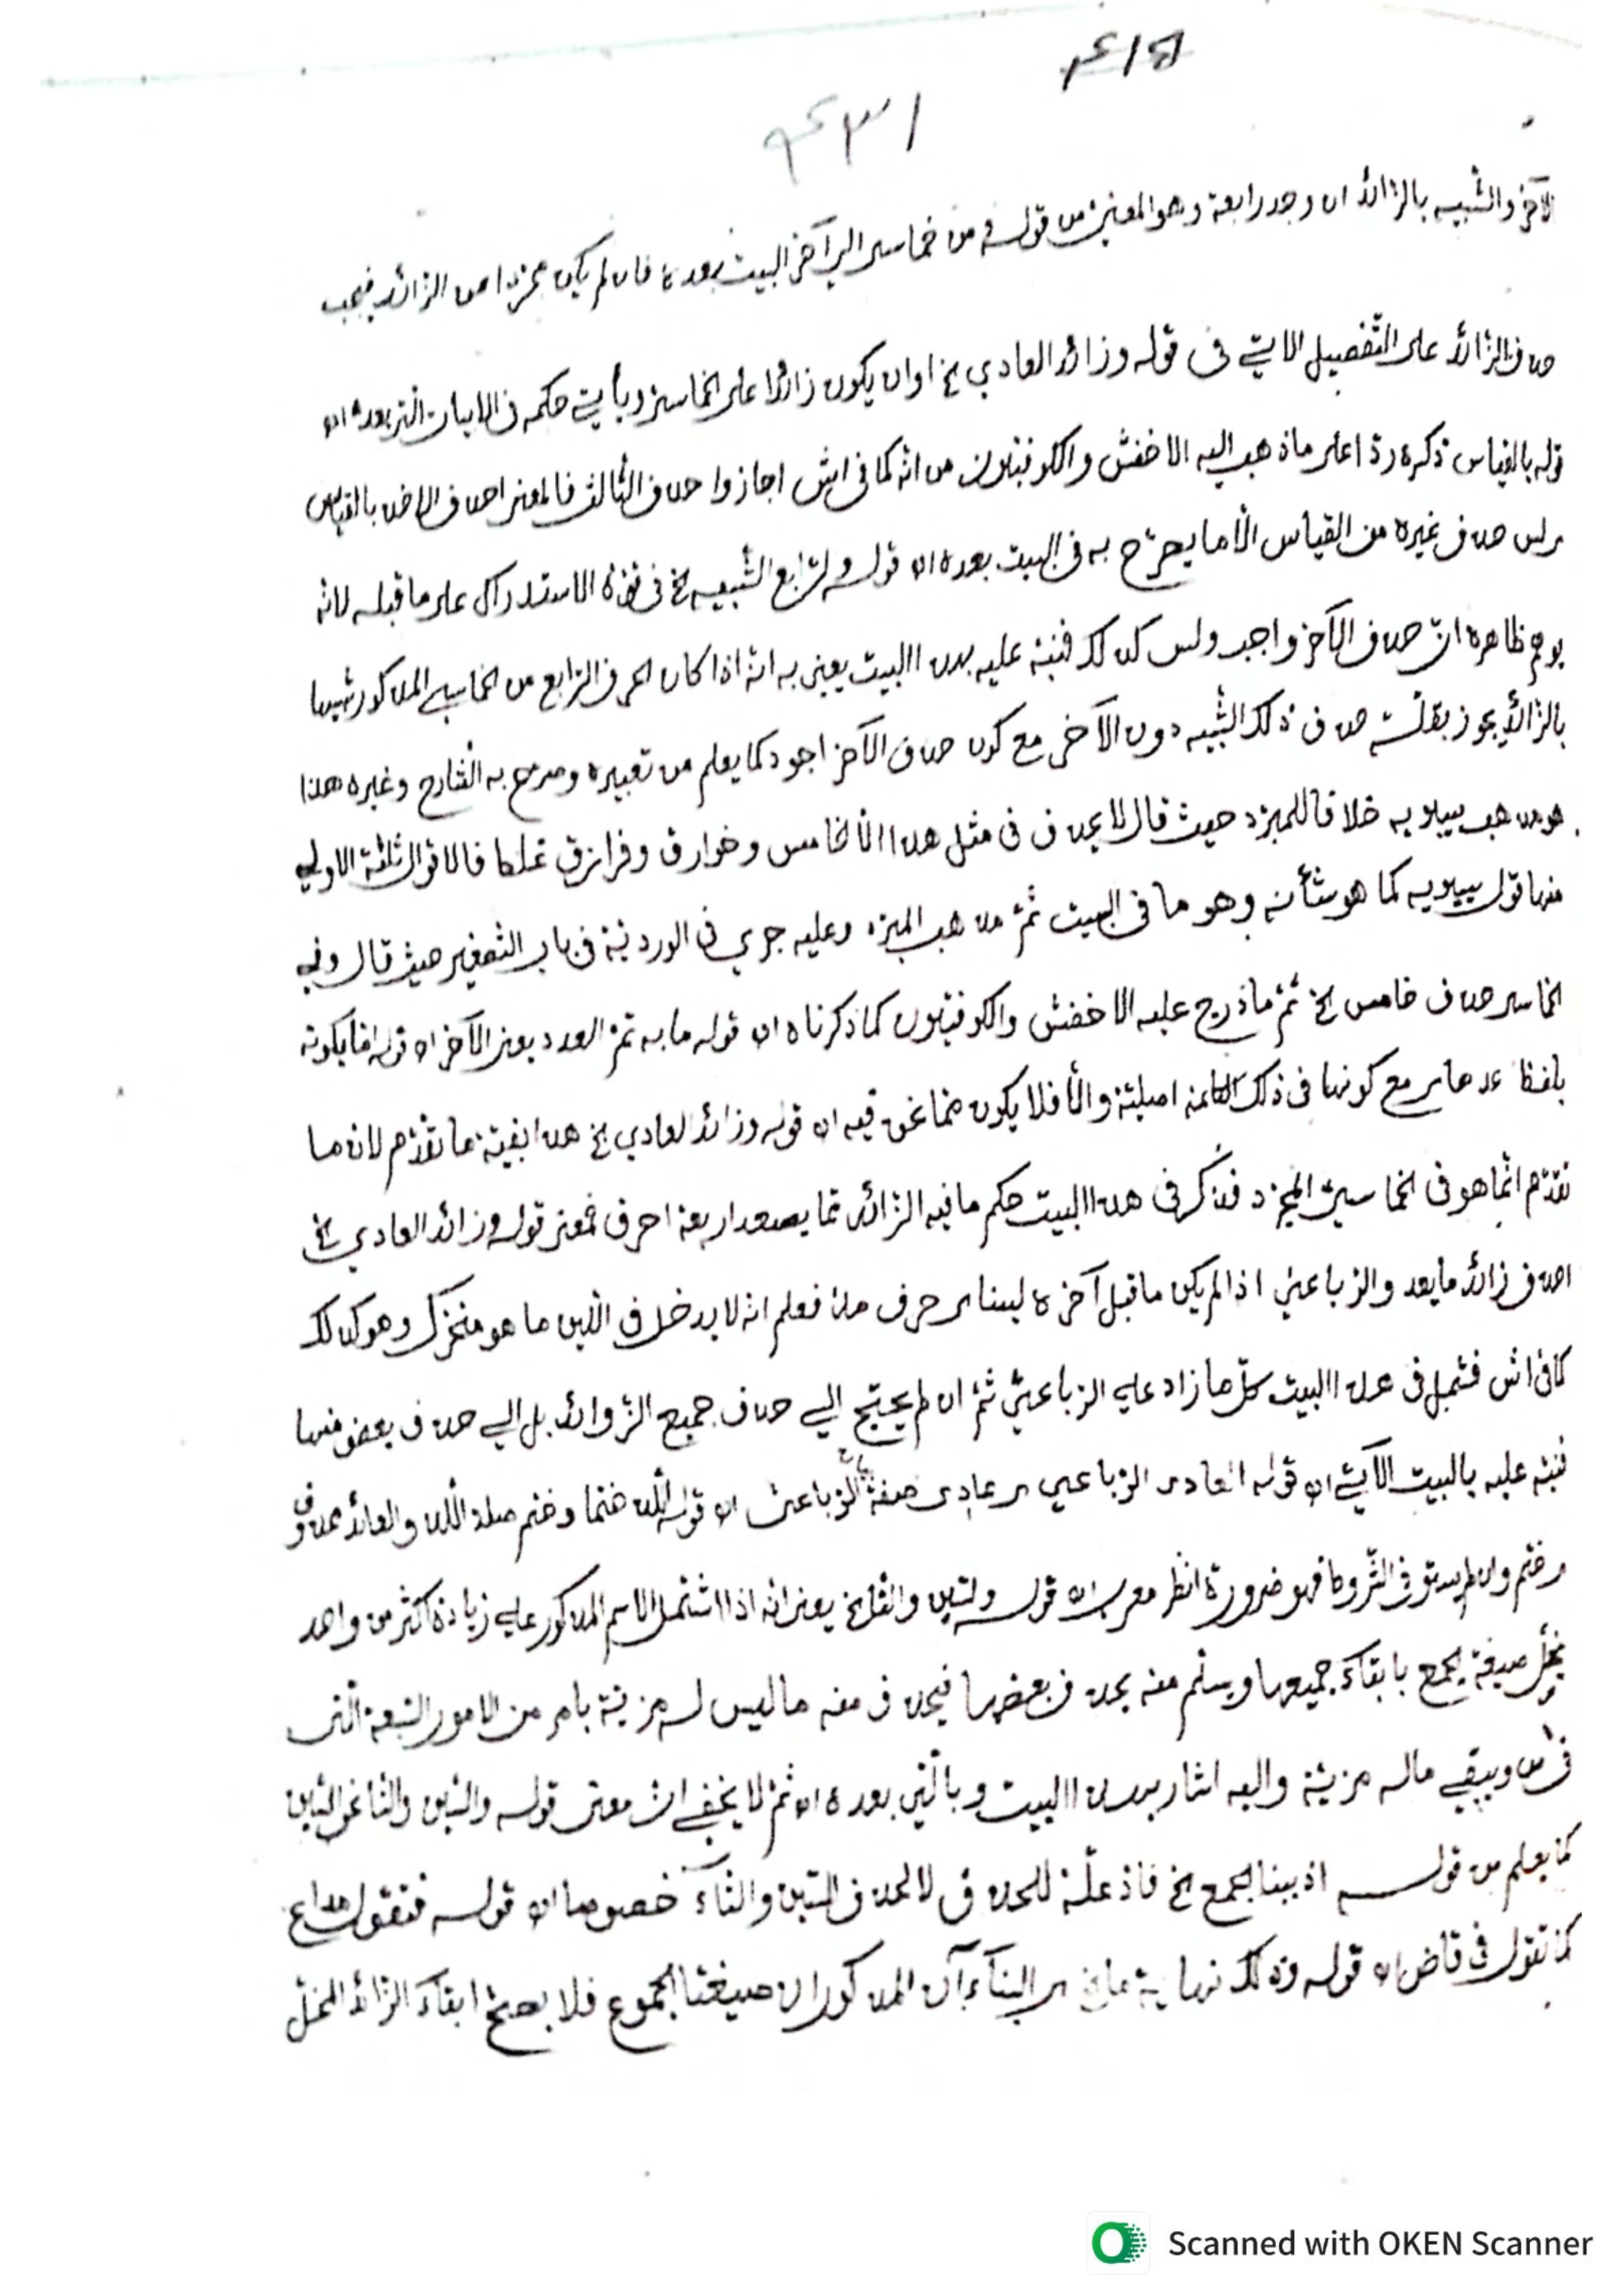 ۴۱۵
۴۳۱
الآخر والشبيه بالزائد ان وجد رابعة وهو المعنيّ من قوله ومن خماسي الي آخر البيت بعده فان لم يكن مجرّدا من الزائد فيجب
حذف الزائد على التّفصيل الاتي في قوله وزائد العادي الخ اوان يكون زائدا على الخماسيّ ويأتي حكمه في الابيات التي بعده اه
قوله بالقياس ذكره ردّا على ماذهب اليه الاخفش والكوفيّون من انّه كما في اش اجازوا حذف الثّالث فالمعنى احذف الاخر بالقياس
وليس حذف غيره من القياس الّا ما يصرّح به في البيت بعده اه قوله والرّابع الشّبيه الخ في قوّة الاستدراك على ما قبله لانّه
يوهم ظاهره انّ حذف الآخر واجب وليس كذلك فنبّه عليه بهذا البيت يعني به انّه اذا كان الحرف الرّابع من الخماسي المذكور شبيها
بالزّائد يجوز بقلّة حذف ذلك الشّبيه دون الآخر مع كون حذف الآخر اجود كما يعلم من تعبيره وصرح به الشّارح وغيره هذا
هو مذهب سيبويه خلافا للمبرّد حيث قال لا يحذف في مثل هذا الّا الخامس وخوارق وفرازق غلط فالاقوال ثلاثة الاولي
منها قول سيبويه كما هو شأنه وهو ما في البيت ثمّ مذهب المبرّد وعليه جري في الورديّة في باب التّصغير حيث قال وفي
الخماسي حذف خامس الخ ثمّ ما درج عليه الاخفش والكوفيّون كما ذكرناه اه قوله ما به تمّ العدد يعني الآخر اه قوله امّا بكونه
بلفظ مع كونها في ذلك الكلمة اصليّة والّا فلا يكون ممّا نحن فيه اه قوله وزائد العادي الخ هذا بقيّة ما تقدّم لانّ ما
تقدّم انّما هو في الخماسيّ المجرّد فذكر في هذا البيت حكم ما فيه الزّائد ممّا يصعد اربعة احرف فمعنى قوله وزائد العادي الخ
احذف زائد ما يعدو الرّباعيّ اذا لم يكن ما قبل آخره لينا اي حرف مدّ فعلم انّه لا يدخل في اللّين ما هو متحرّك وهو كذلك
كما في اش فشمل في هذا البيت كلّ ما زاد علي الرّباعيّ ثمّ ان لم يحتج الي حذف جميع الزّوائد بل الي حذف بعض منها
فنبّه عليه بالبيت الآتي اه قوله العادي الرّباعي اي عادي صفة الرّباعيّ اه قوله اللّذ ختما وختم صلة اللّذ والعائد محذوف
وختم وان لم يستوفي الشّروط فهو ضرورة انظر معرب اه قوله والسّين والتّا الخ يعني انّه اذا اشتمل الاسم المذكور علي زيادة اكثر من واحد
يخلّ صيغة الجمع بابقاء جميعها ويسلم منه بحذف بعضها فيحذف منه ما ليس له مزيّة بامر من الامور السّبعة الّتي
في اش ويبقي ماله مزيّة واليه اشار بهذا البيت وبالّتي بعده اه ثمّ لا يخفي انّ معنى قوله والسّين والتّا
كما يعلم من قولـــــه اذ ببنا الجمع الخ فاذ علّة للحذف لا لحذف السّين والتّاء خصوصا اه قولـه فتقول مداع
كما تقول في قاض اه قوله وذلك نهاية اي البناءان المذكوران صيغتا الجموع فلا يصحّ ابقاء الزّائد المخلّ
Scanned with OKEN Scanner